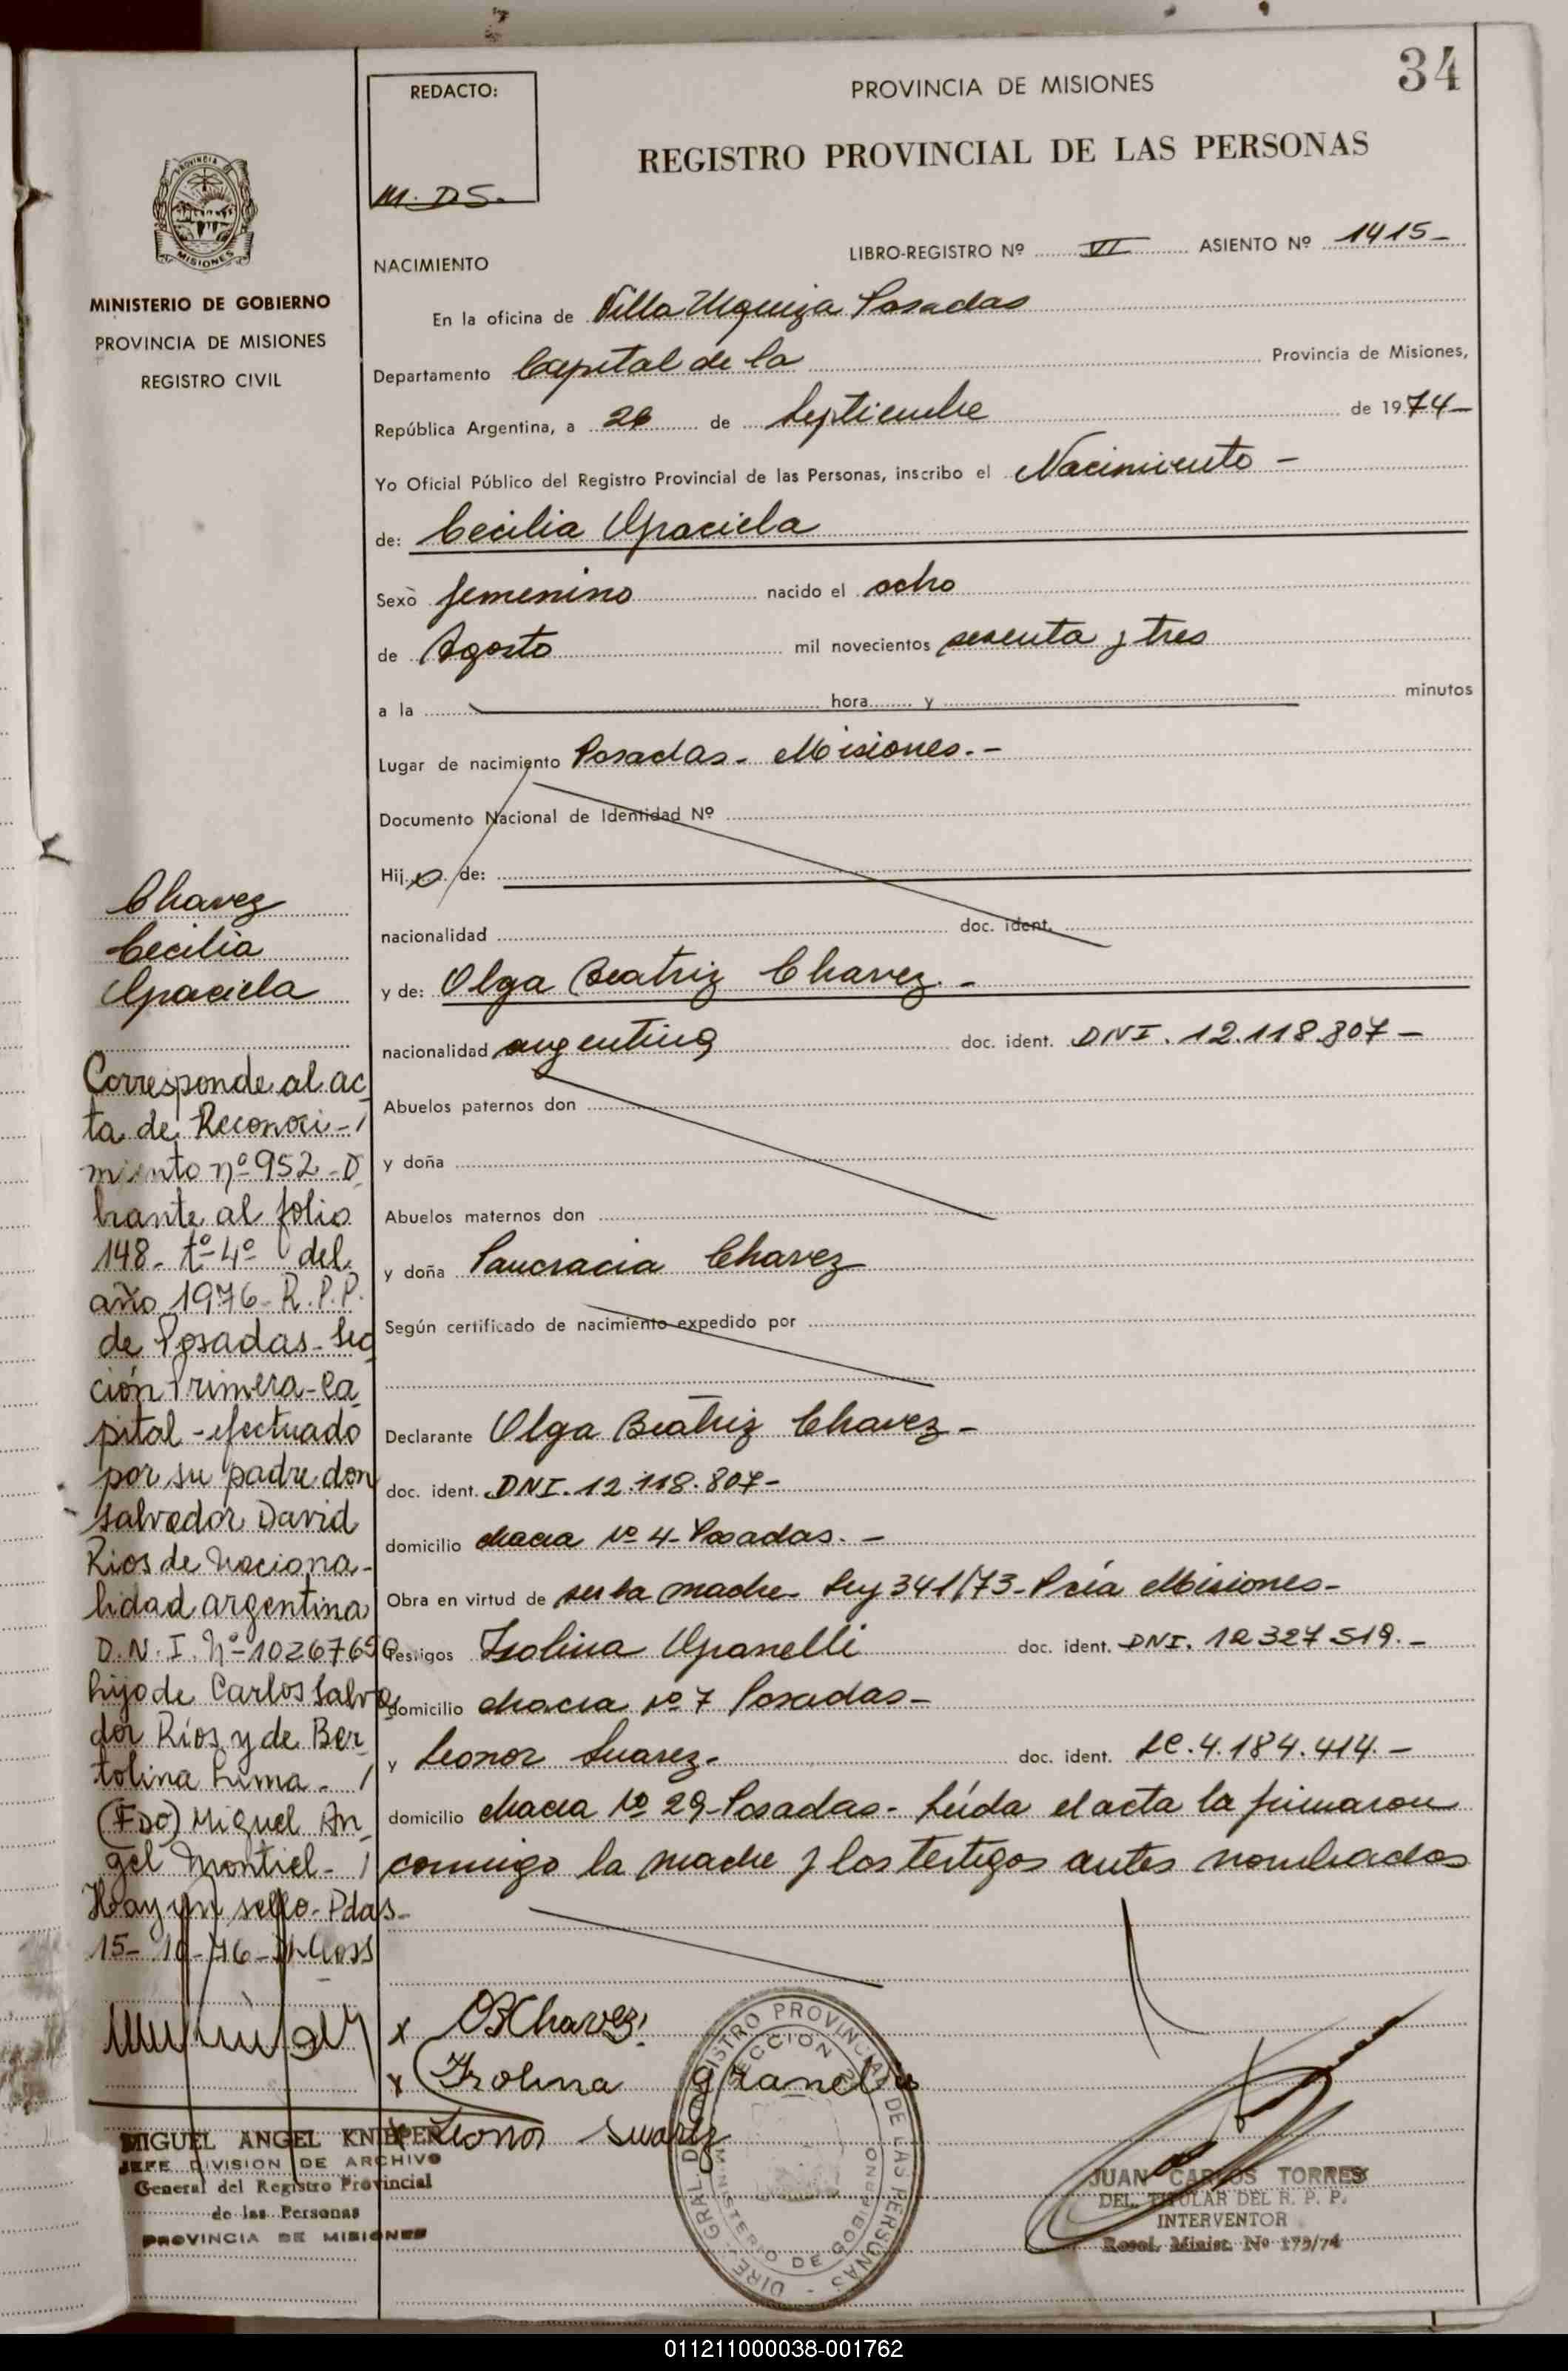 34
REDACTO:
M. DS.
PROVINCIA DE MISIONES
REGISTRO PROVINCIAL DE LAS PERSONAS
PROVINCIA
MISIONES
MINISTERIO DE GOBIERNO
PROVINCIA DE MISIONES
REGISTRO CIVIL
NACIMIENTO
LIBRO-REGISTRO Nº VI ASIENTO Nº 1415-
En la oficina de Villa Urquiza Posadas
Departamento Capital de la Provincia de Misiones,
República Argentina, a 26 de Septiembre de 1974-
Yo Oficial Público del Registro Provincial de las Personas, inscribo el Nacimiento -
de: Cecilia Graciela
Sexo femenino nacido el ocho
de Agosto mil novecientos sesenta y tres
a la hora y minutos
Lugar de nacimiento Posadas - Misiones. -
Documento Nacional de Identidad Nº
Hij de:
nacionalidad doc. ident.
y de: Olga Beatriz Chavez. -
nacionalidad argentina doc. ident. DNI. 12.118.807-
Abuelos paternos don
y doña
Abuelos maternos don
y doña Pancracia Chavez
Según certificado de nacimiento expedido por
Declarante Olga Beatriz Chavez -
doc. ident. DNI. 12.118.807-
domicilio chacra Nº 4- Posadas. -
Obra en virtud de ser la madre - Ley 341/73- Pcía Misiones-
Testigos Isolina Granelli doc. ident. DNI. 12 327 519. -
domicilio chacra Nº 7 Posadas -
y Leonor Suarez - doc. ident. LC. 4.184.414. -
domicilio chacra Nº 29- Posadas - Leída el acta la firmaron
conmigo la madre y los testigos antes nombrados
Chavez
Cecilia
Graciela
Corresponde al ac
ta de Reconoci-
miento nº 952 - O
brante al folio
148- tº 4º del
año 1976- R.P.P.
de Posadas- Sec
ción Primera- Ca
pital - efectuado
por su padre don
Salvador David
Rios de naciona-
lidad argentina
D.N.I. Nº 1026765
hijo de Carlos Salva
dor Ríos y de Ber
tolina Lima -
(FDO) Miguel An
gel Montiel -
Hay un sello - Pdas-
15- 10- 76-
x OBChavez
x Isolina Granelli
x Leonor Suarez
MIGUEL ANGEL KNIEPER
JEFE DIVISION DE ARCHIVO
General del Registro Provincial
de las Personas
PROVINCIA DE MISIONES
DIREC. GRAL. DEL REGISTRO PROVINCIAL DE LAS PERSONAS
SECCION
MINISTERIO DE GOBIERNO
JUAN CARLOS TORRES
DEL. TITULAR DEL R. P. P.
INTERVENTOR
Resol. Minist. Nº 179/74
011211000038-001762